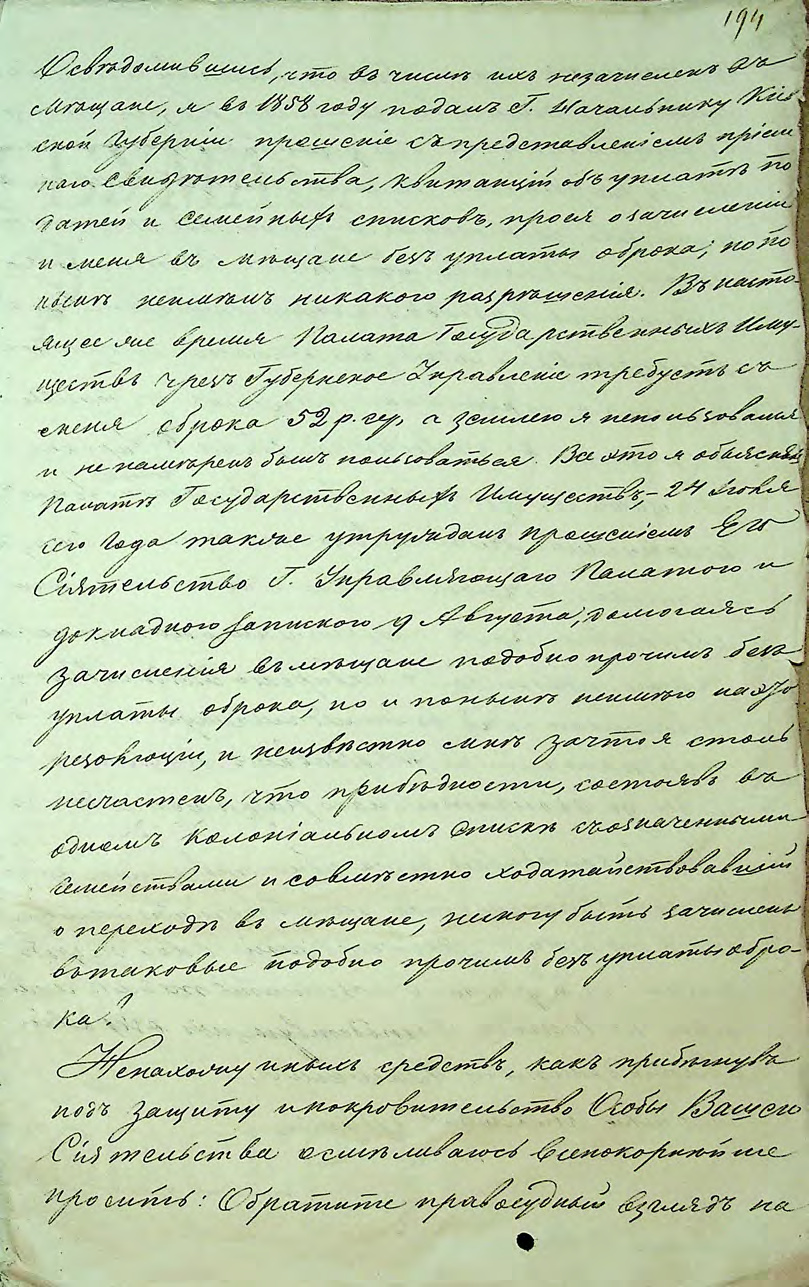 194
Освѣдомившись, что въ числѣ ихъ незачисленъ въ
мѣщане, я въ 1858 году подалъ Г. Начальнику Кіев
ской Губерніи прошеніе съ представленіемъ пріем
наго свидѣтельства, квитанцій объ уплатѣ по
датей и семейныхъ списковъ, прося о зачисленіи
и меня въ мѣщане безъ уплаты оброка; но по
нынѣ неимѣлъ никакого разрѣшенія. Въ насто-
ящее же время Палата Государственныхъ Иму-
ществъ чрезъ Губернское Управленіе требуетъ съ
меня оброка 52 р. а землею я непользовался
и не намѣренъ былъ пользоваться. Все это я объяснялъ
Палатѣ Государственныхъ Имуществъ, – 24 Іюля
сего года также утруждалъ прошеніемъ Его
Сіятельство Г. Управляющаго Палатою и
докладною запискою 9 Августа, домогаясь
зачисленія въ мѣщане подобно прочимъ безъ
уплаты оброка, но и понынѣ неимѣю на это
резолюціи, и неизвѣстно мнѣ зачто я столь
несчастенъ, что прибѣдности, состоявъ въ
одномъ Колоніальномъ спискѣ съ означенными
семействами и совмѣстно ходатайствовавшій
о переходѣ въ мѣщане, немогу быть зачисленъ
втаковые подобно прочимъ безъ уплаты обро-
ка?
Ненахожу иныхъ средствъ, какъ прибѣгнувъ
подъ защиту и покровительство Особы Вашего
Сіятельства осмѣливаюсь всепокорнѣйше
просить: Обратите правосудный взглядъ на